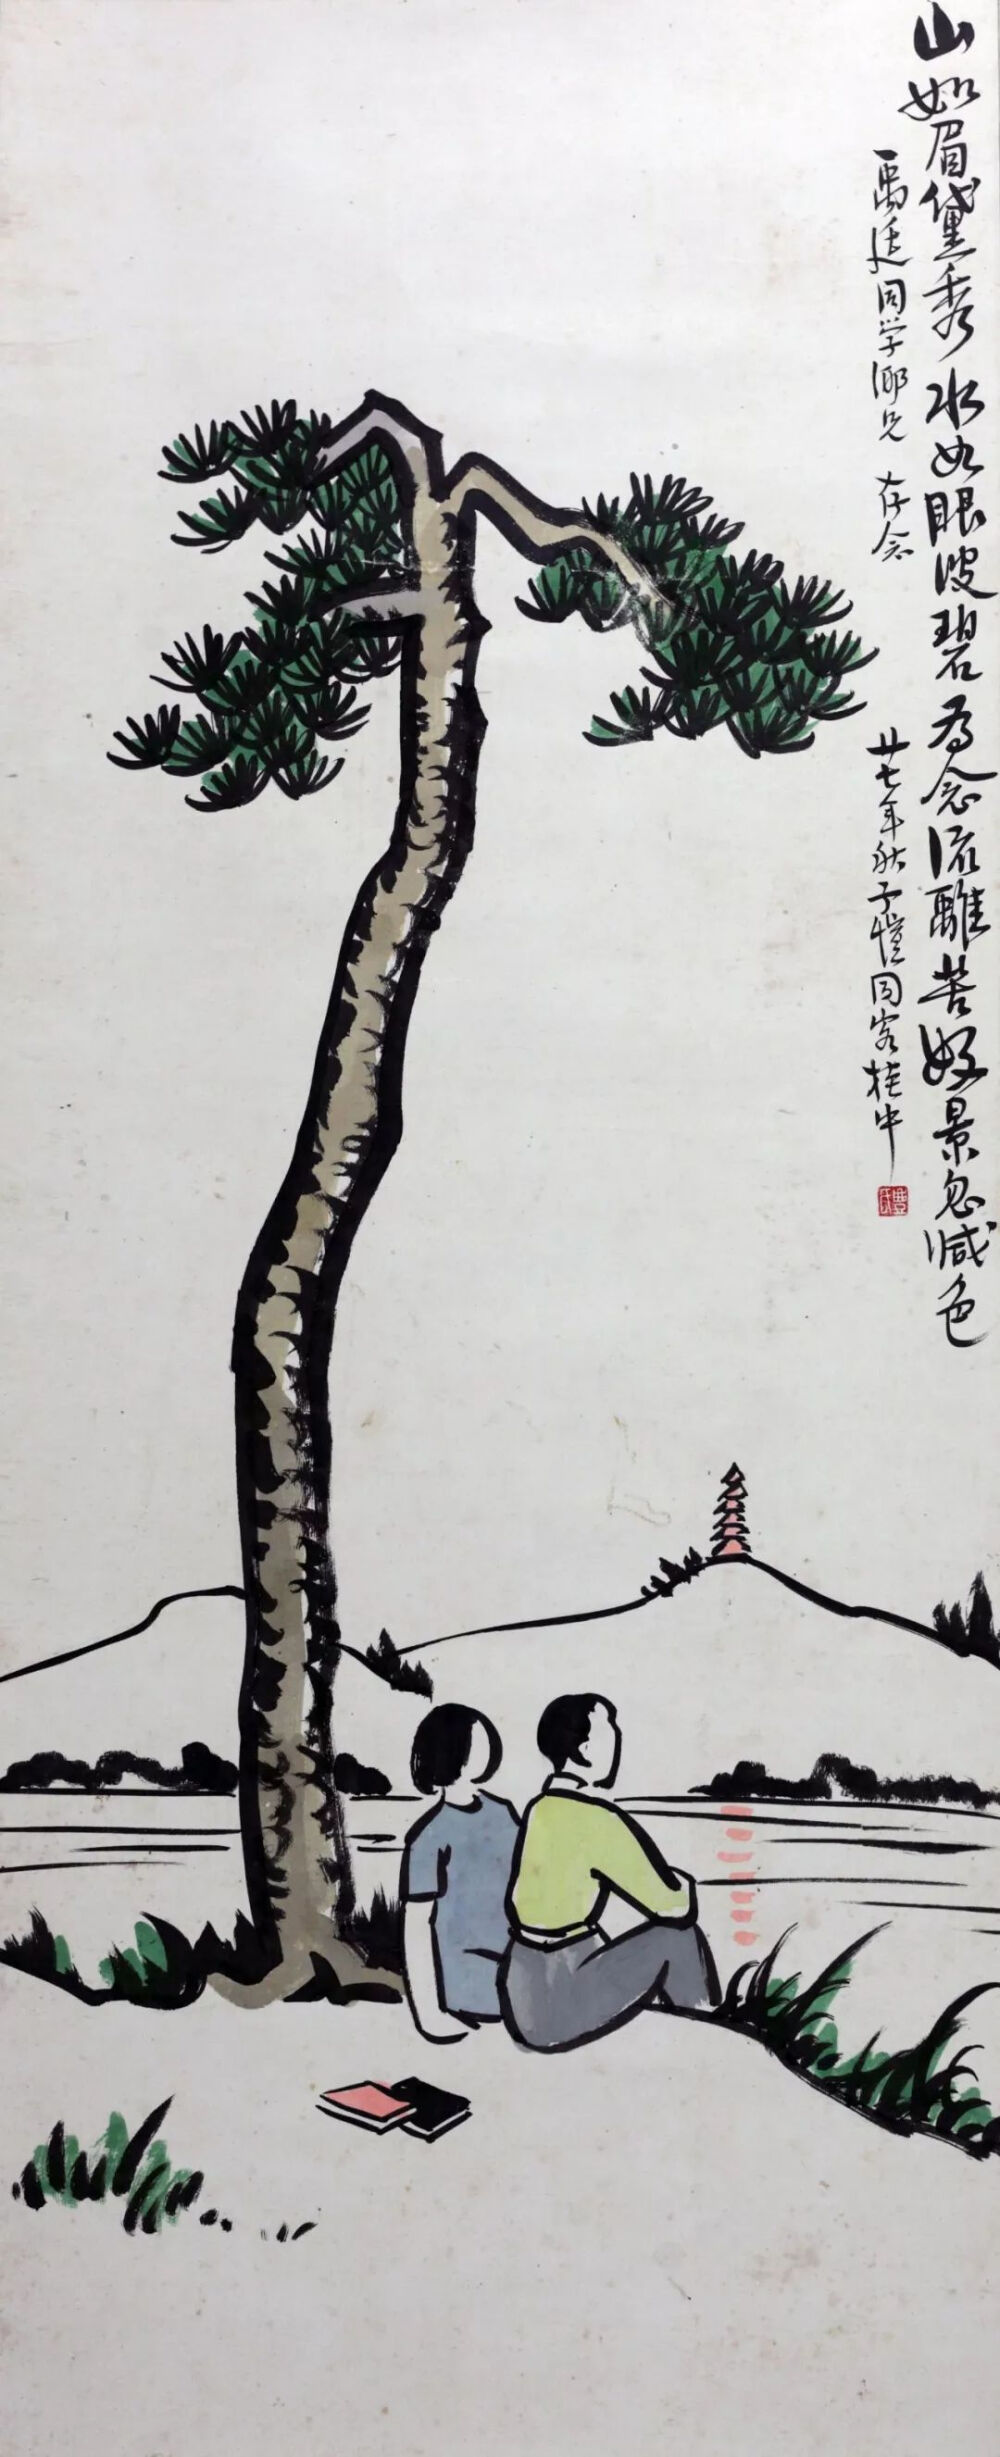 山如眉黛秀水如眼波碧为念流离苦好景忽减色
禹廷同学仁兄 存念
廿七年秋子愷同客桂中
豐氏